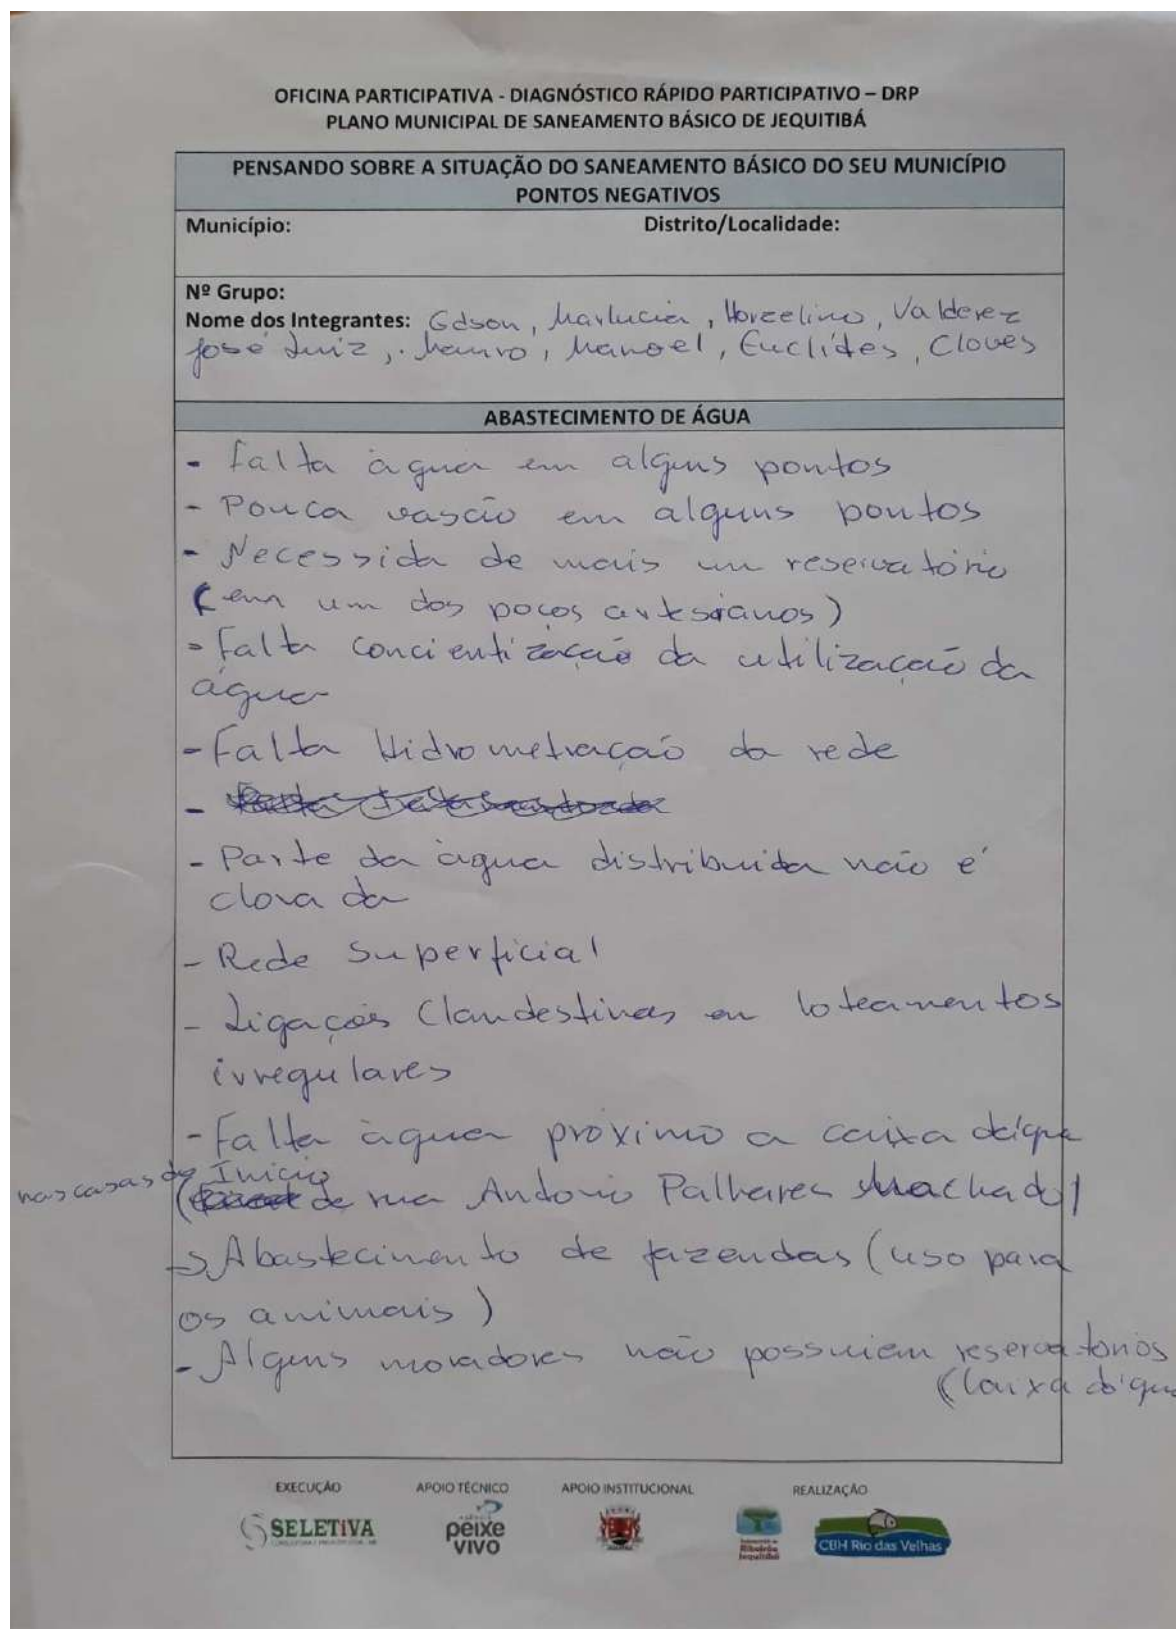 OFICINA PARTICIPATIVA - DIAGNÓSTICO RÁPIDO PARTICIPATIVO – DRP
PLANO MUNICIPAL DE SANEAMENTO BÁSICO DE JEQUITIBÁ
PENSANDO SOBRE A SITUAÇÃO DO SANEAMENTO BÁSICO DO SEU MUNICÍPIO
PONTOS NEGATIVOS
Município: Distrito/Localidade:
Nº Grupo:
Nome dos Integrantes: Edson, Marlucia, Horcelino, Valderez
José Luiz, Mauro, Manoel, Euclides, Cloves
ABASTECIMENTO DE ÁGUA
- falta água em alguns pontos
- Pouca vascão em alguns pontos
- Necessida de mais um reservatório
(em um dos poços artesianos)
- falta concientização da utilização da
água
- Falta Hidrometração da rede
-
- Parte da água distribuida não é
clorada
- Rede Superficial
- Ligações Clandestinas em loteamentos
irregulares
- Falta água próximo a caixa dágua
nas casas do Início
(de rua Antonio Palhares Machado)
→ Abastecimento de fazendas (uso para
os animais)
- Alguns moradores não possuiem reservatórios
(Caixa d'gua
EXECUÇÃO APOIO TÉCNICO APOIO INSTITUCIONAL REALIZAÇÃO
SELETIVA
peixe
vivo
Ribeirão
Jequitibá
CBH Rio das Velhas